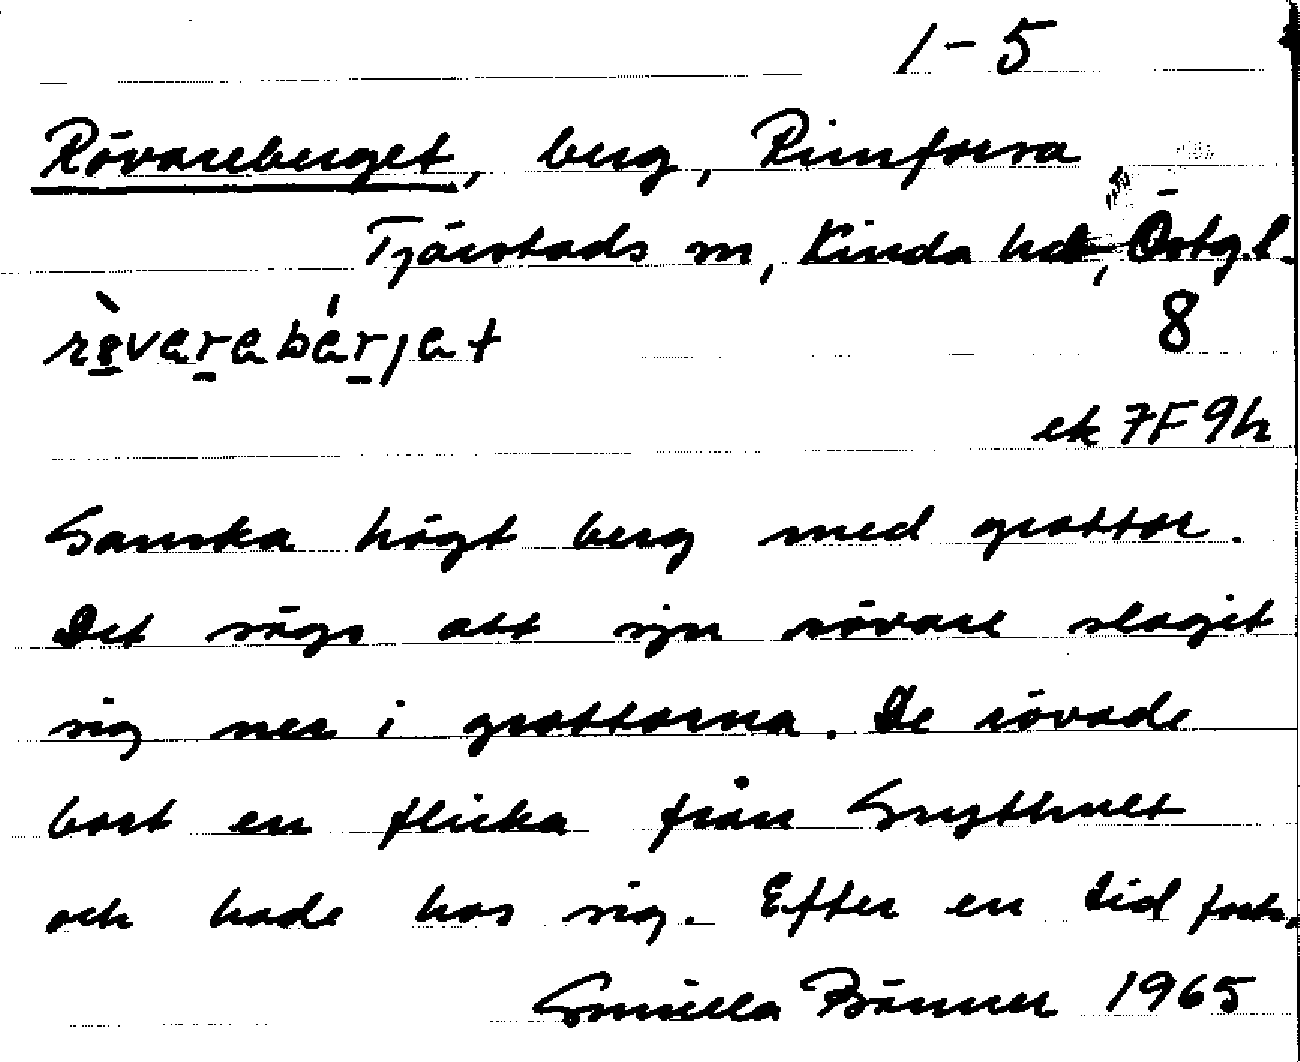 1-5
Rövareberget, berg, Rimforsa
Tjärstads sn, Kinda hd, Östg.l.
8
ek 7F 9h
Ganska högt berg med grottor.
Det sägs att sju rövare slagit
sig ner i grottorna. De rövade
bort en flicka från
och hade hos sig. Efter en tid forts.
Gunilla 1965